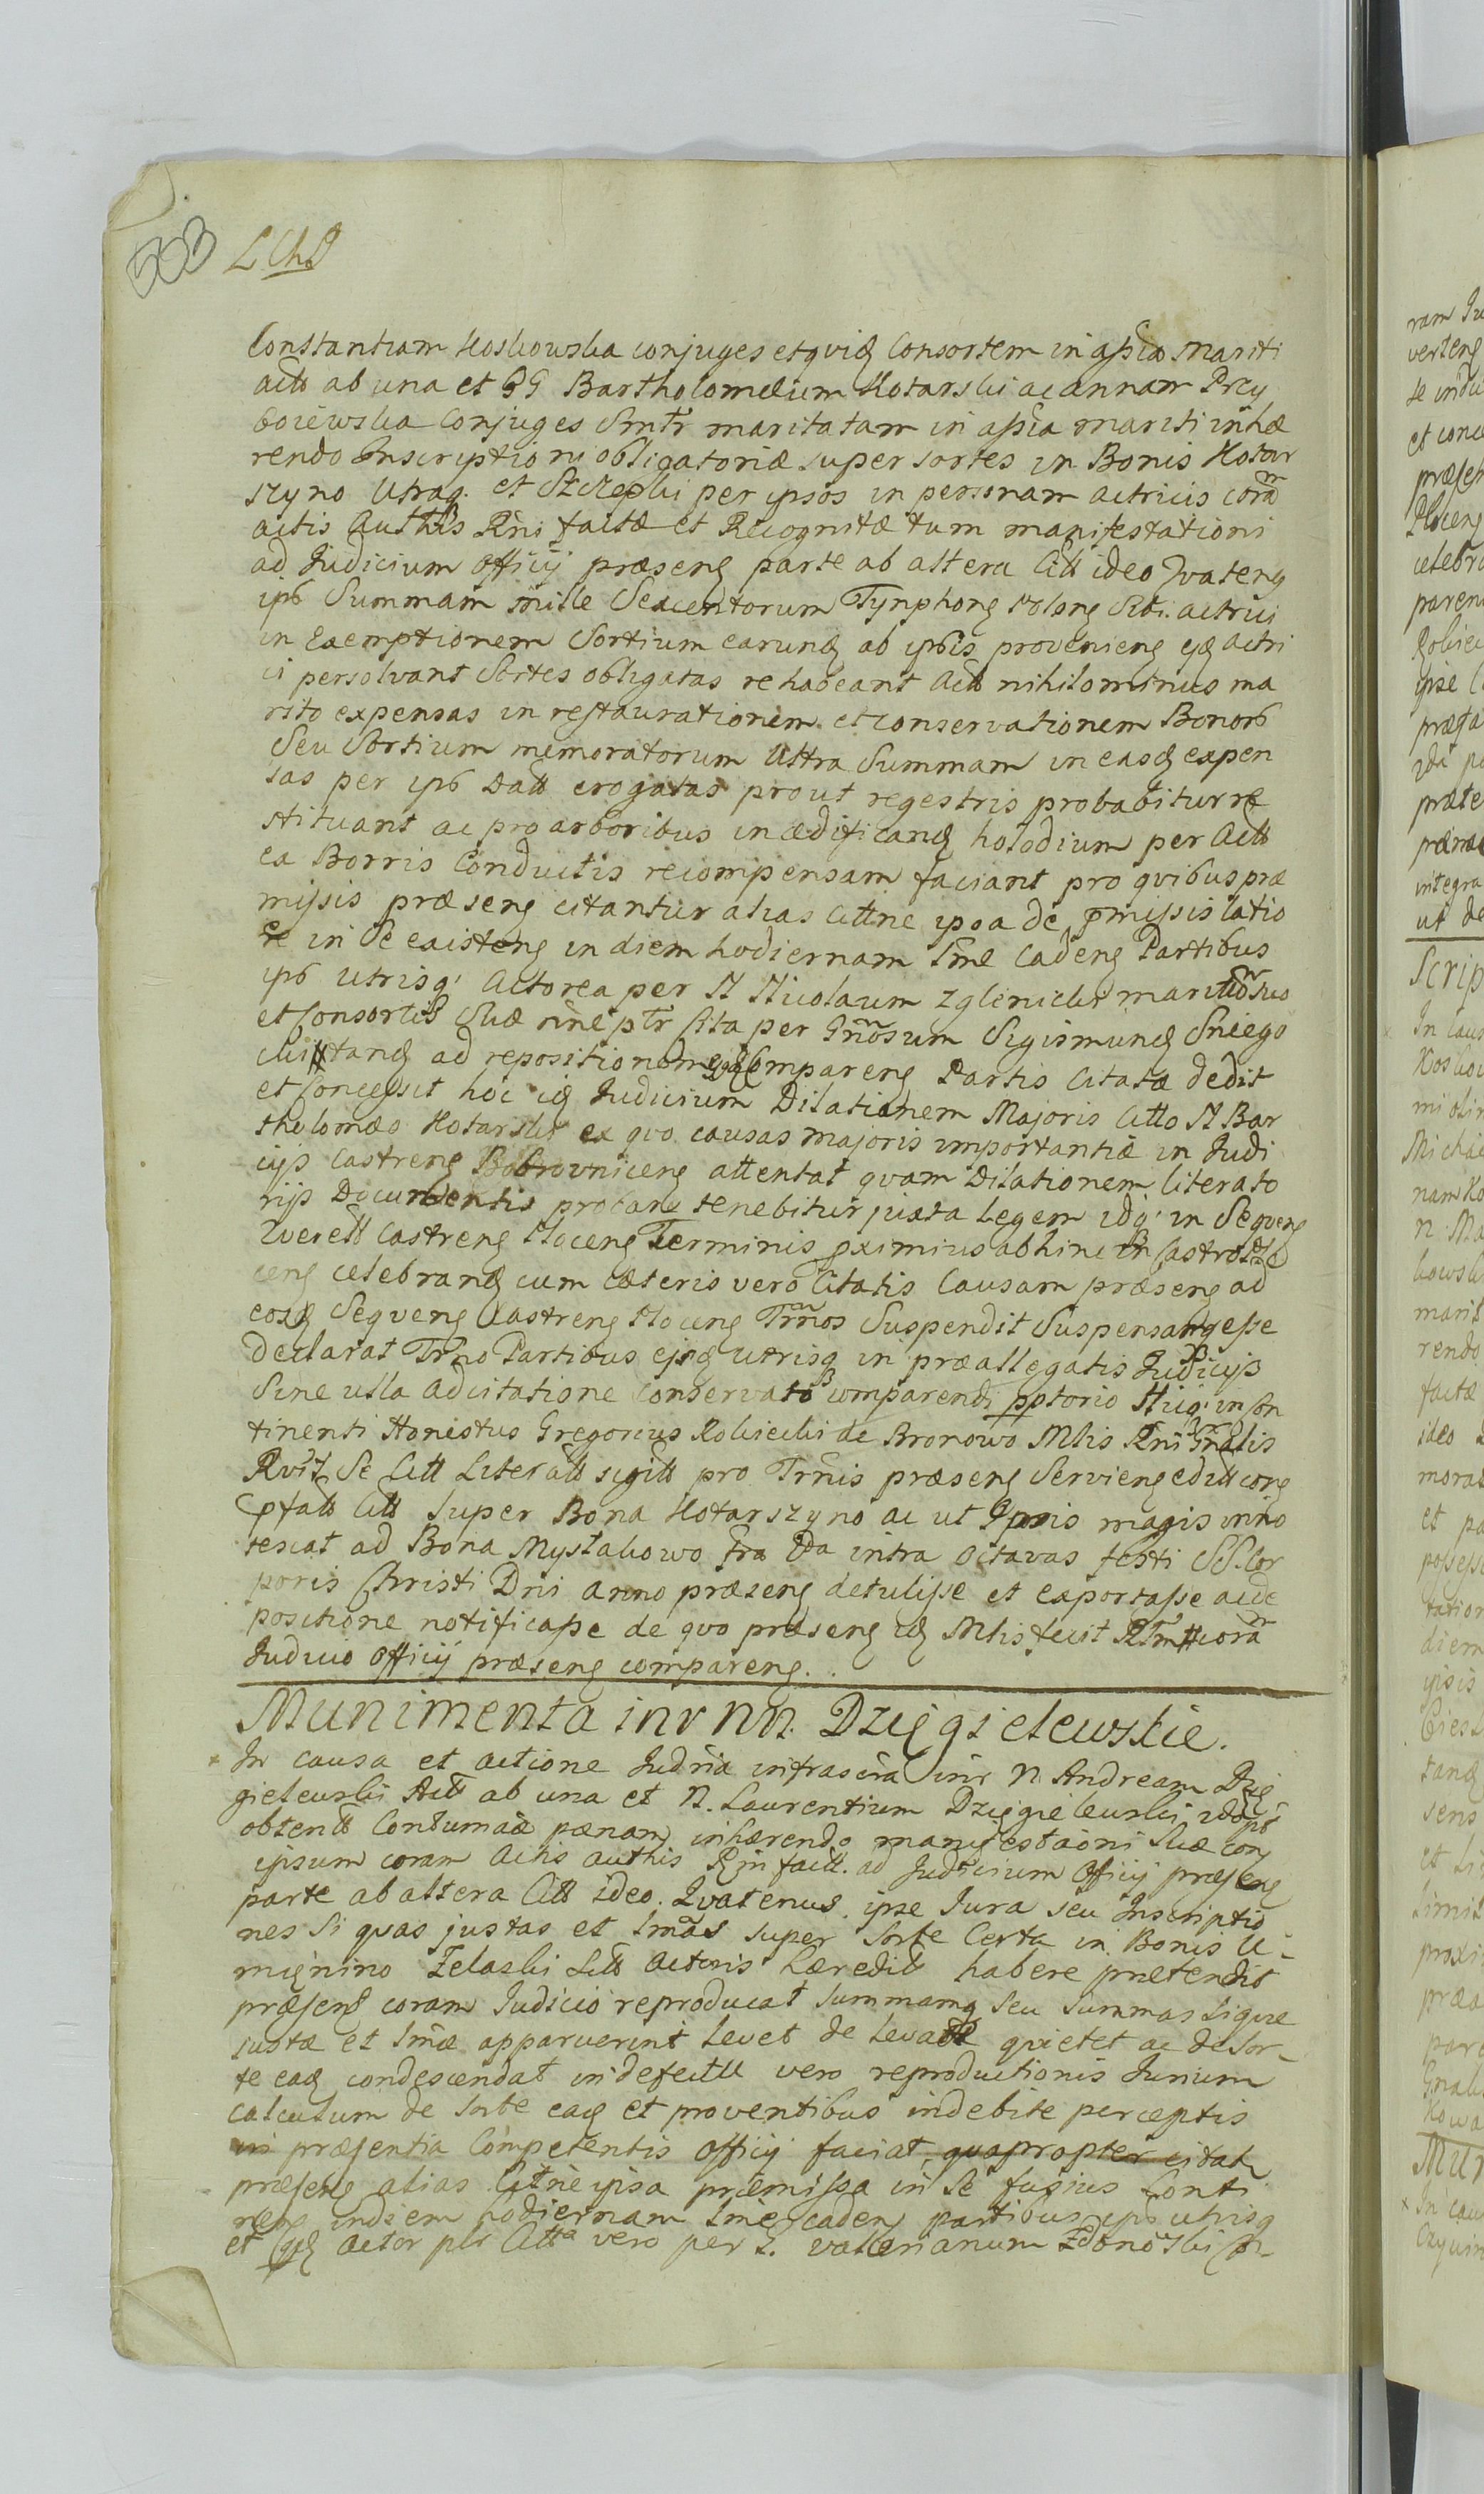 503 LChD
Constantiam Koskowska conjuges etqvid Consortem in assia mariti
actt ab una et GG Bartholomæum Kotarski ac annam Przy
boiewska Conjuges Smtr maritatam in assia mariti inhæ
rendo Inscriptioni obligatoriæ super sortes in Bonis Kotar
szyno Utraq. et Szczepki per ipsos in personam actricis corã
actis Authis Rñi factæ et Recognitæ tum manifestationi
ad Judicium Officij præseng parte ab altera Citt ideo Qvateng
ipb Summam mille Sexcentorum Tynphong Polong Sibi actrici
in Exemptionem Sortium earung ab ipsis provenieng ejg actri
ci persolvant Sortes obligatas rehabeant Actt nihilominus ma
rito expensas in restaurationem et conservationem Bonorb
Seu Sortium memoratorum Ultra Summam in easg expen
sas per ipb Datt erogatas prout regestris probabitur re
stituant ac pro arboribus in ædificang holodium per Actt
ea Borris Conductis recompensam faciant pro qvibus præ
missis præseng citantur alias Cittne ipsa de pmissis latio
re in Se existeng in diem hodiernam Sme Cadeng Partibus
ipb utrisq. Actorea per N Nicolaum Zglenicki maritũ suũ
et Consortis Suæ nine ptr Cita per Gnõsum Sigismung Sniego
cki Stang ad repositionem Compareng Partis Citatæ dedit
et Concessit hoc ig Judicium Dilationem Majoris Citto N Bar
tholomæo Kotarski ex qvo causas majoris importantiæ in Judi
cijs Castreng Bobrovniceng attentat qvam Dilationem literato
rijs Documentis probare tenebitur juxta Legem idq. in Seqveng
Qverell Castreng Ploceng Terminis pximius abhinc in Castro Plo
ceng celebrang cum cæteris vero Citatis Causam præseng ad
eosg Seqveng Castreng Ploceng Trños Suspendit Suspensamg esse
Declarat Trño Partibus ejsg utrisq in præallegatis Judicijs
Sine ulla Adcitatione Conservato comparendi pptorio Hicq. in Con
tinenti Honestus Gregorius Kobiecki de Bronowo Mlis Rñi Gñalis
Rvit Se Citt Literatt sigitt pro Trñis præseng Servieng edit cong
pfatt Citt Super Bona Kotarszyno ac ut Ipsis magis inno
tescat ad Bona Mystakowo fra 2da intra Octavas festi SS. Cor
poris Christi Dni anno præseng detulisse et exportasse ac de
positione notificasse de qvo præseng ig Mlis fecit Rltnem corã
Judicio Officij præseng compareng.
Munimenta inr NN. Dzięgielewskie.
In causa et actione Judria infrascria inr N Andream Dzię
gielewski Actt ab una et N. Laurentium Dzięgielewski
obtentt Contumaciæ pænam inhærendo manifestaõni Suæ cong
ipsum coram Actis authis Rñi factt. ad Judicium Officij præseng
parte ab altera Citt ideo. Qvatenus ipse Jura seu Inscriptio
nes Si qvas justas et Lmãs super Sorte Certa in Bonis U-
mięnino Zelaski Citt Actoris Hæredit habere prætendit
præseng coram Judicio reproducat Summamg seu Summas si qvæ
justæ et Lmæ apparuerint levet de levatis qvietet ac de Sor-
te eag condescendat in defectu vero reproductionis Jurium
calculum de Sorte eag et proventibus indebite perceptis
in præsentia Competentis Officij faciat, qvapropter citat
præseng alias Cittne ipsa præmissa in Se fusius Conti
neng indiem hodiernam Sme cadeng partibus ipb utrisq
et qdg Actor plr Citta vero per G. Valerianum Zdonoski Con